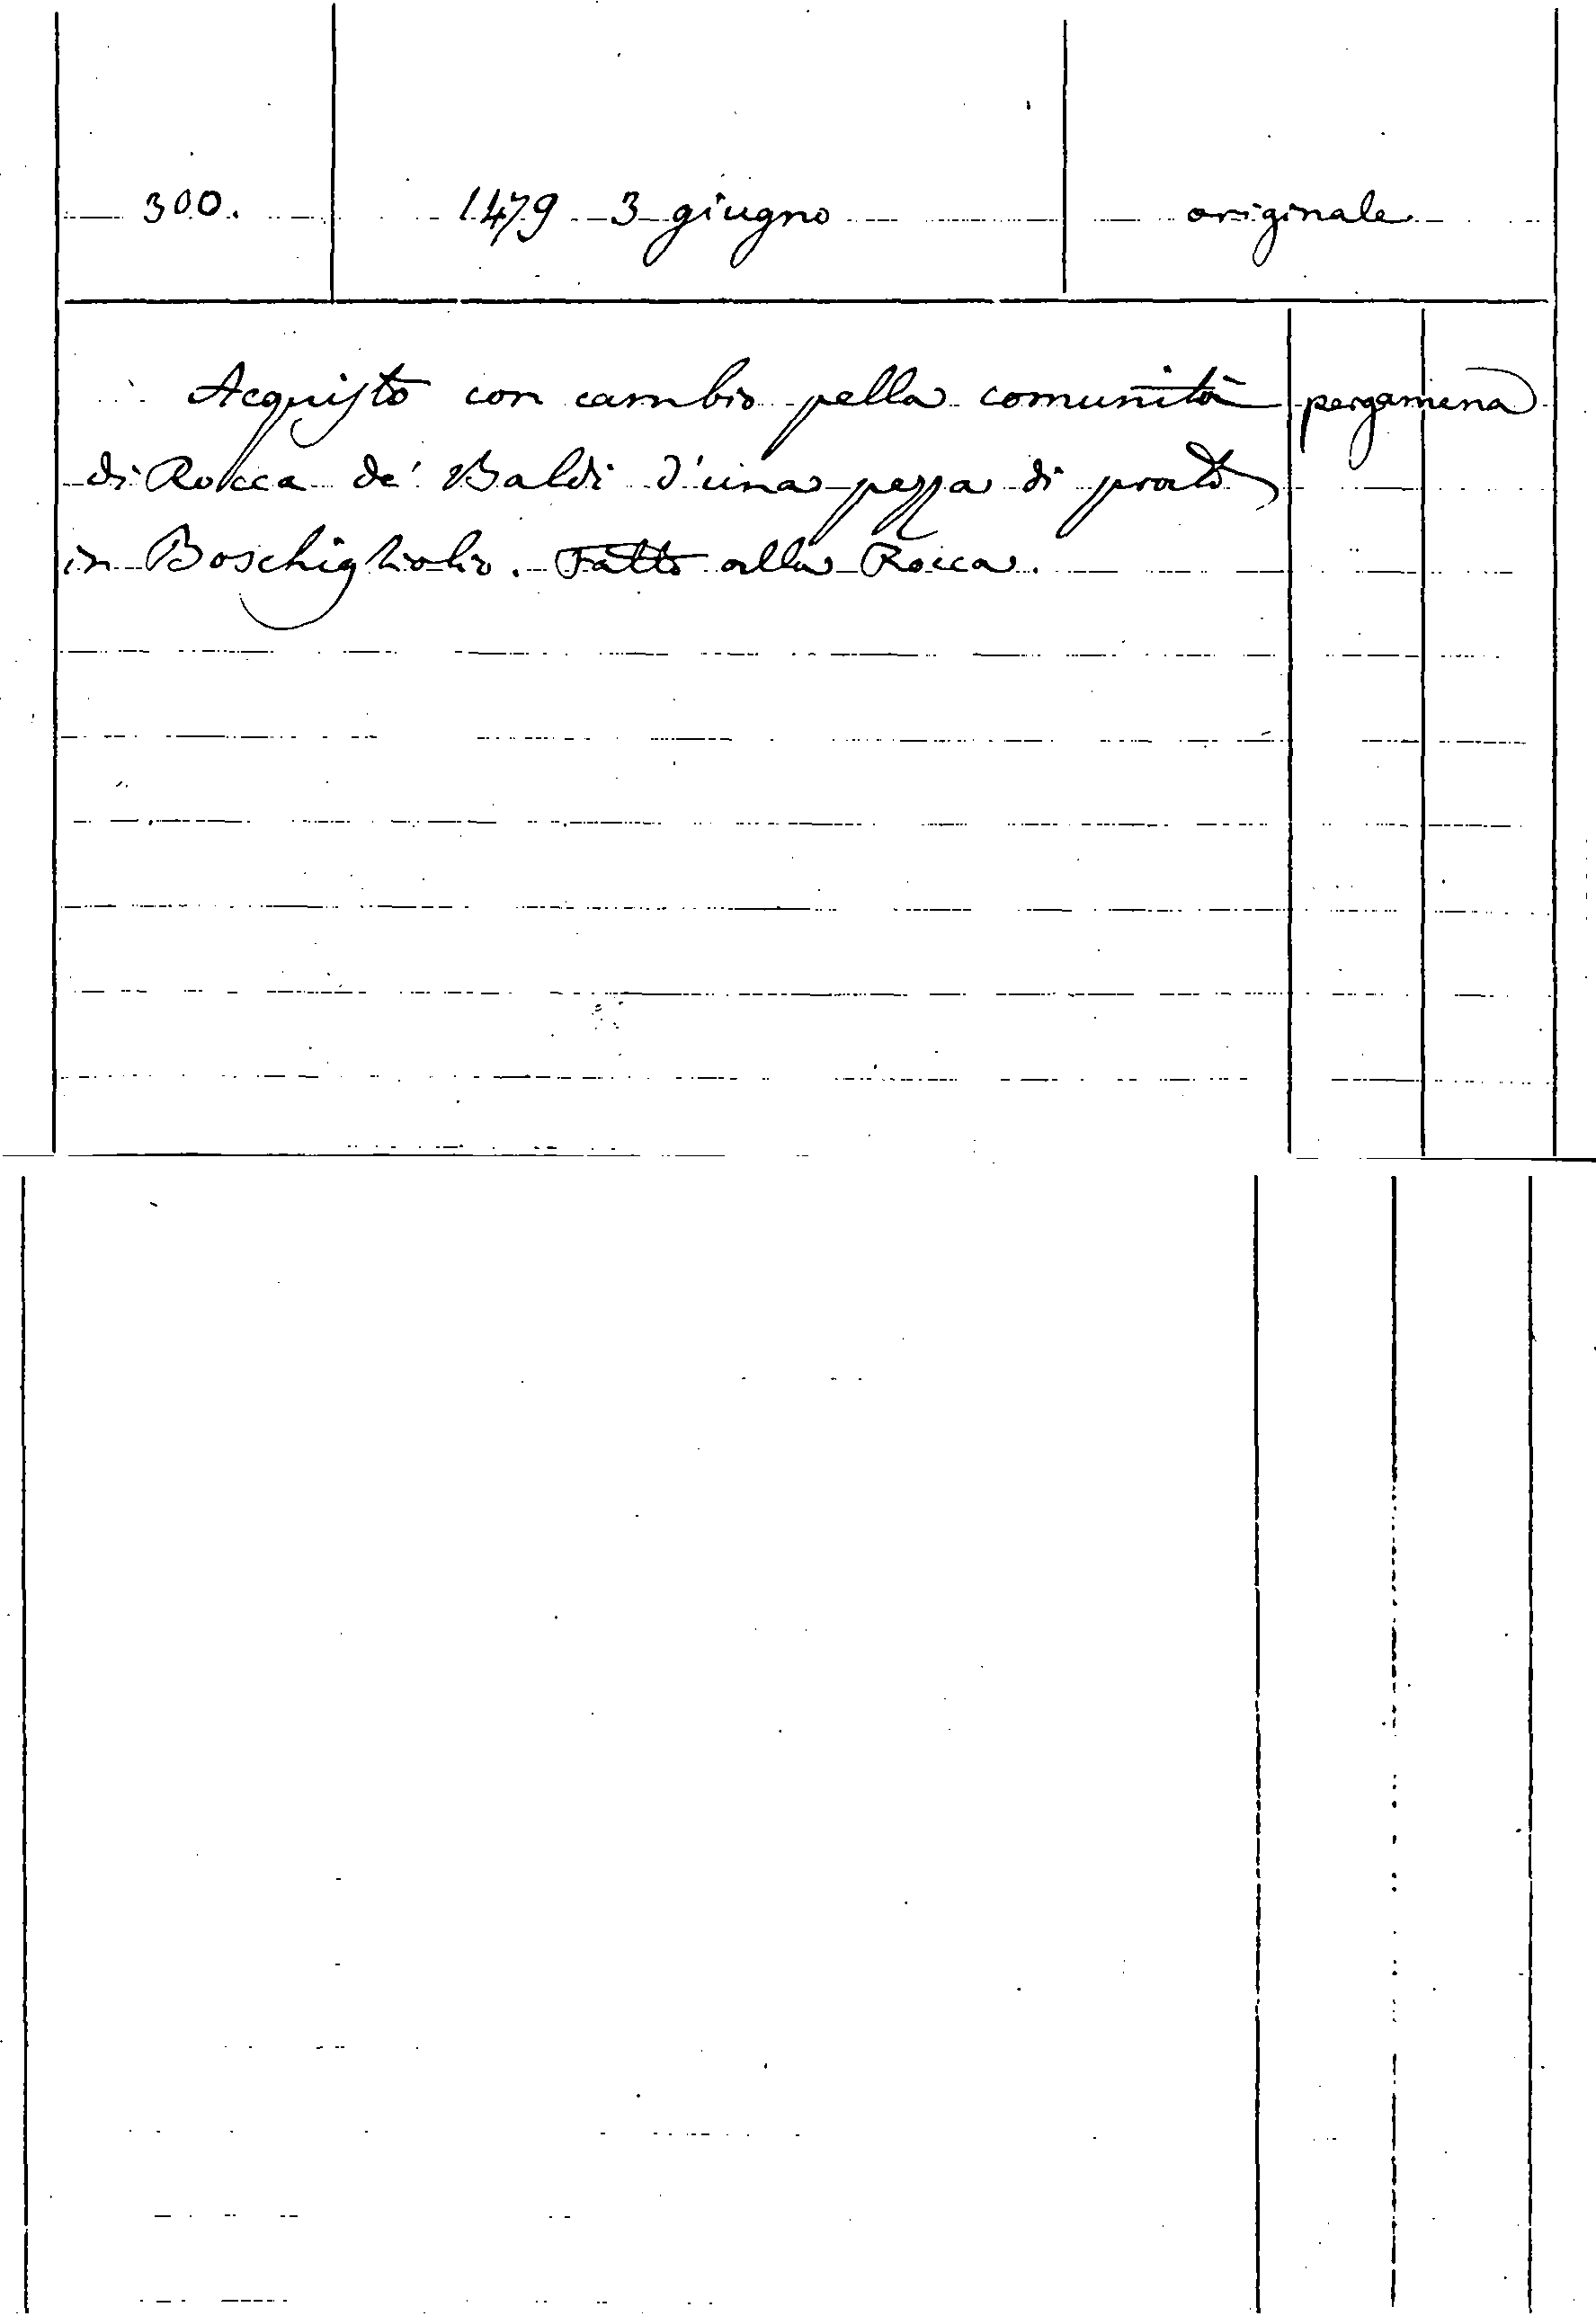 300. 1479 3 giugno originale
Acquisto con cambio pella comunità pergamena
di Rocca de' Baldi d'una pezza di prato
in Boschigliolio. Fatto alla Rocca.